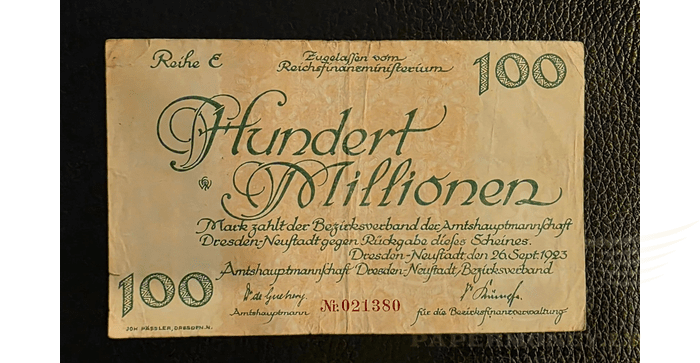 Reihe E
Zugelassen vom
Reichsfinanzministerium
100
Hundert
Millionen
Mark zahlt der Bezirksverband der Amtshauptmannschaft
Dresden-Neustadt gegen Rückgabe dieses Scheines.
Dresden-Neustadt den 26. Sept. 1923
Amtshauptmannschaft Dresden-Neustadt Bezirksverband
100
Amtshauptmann
Nr. 021380
für die Bezirksfinanzverwaltung
JOH. HÄSSLER, DRESDEN-N.